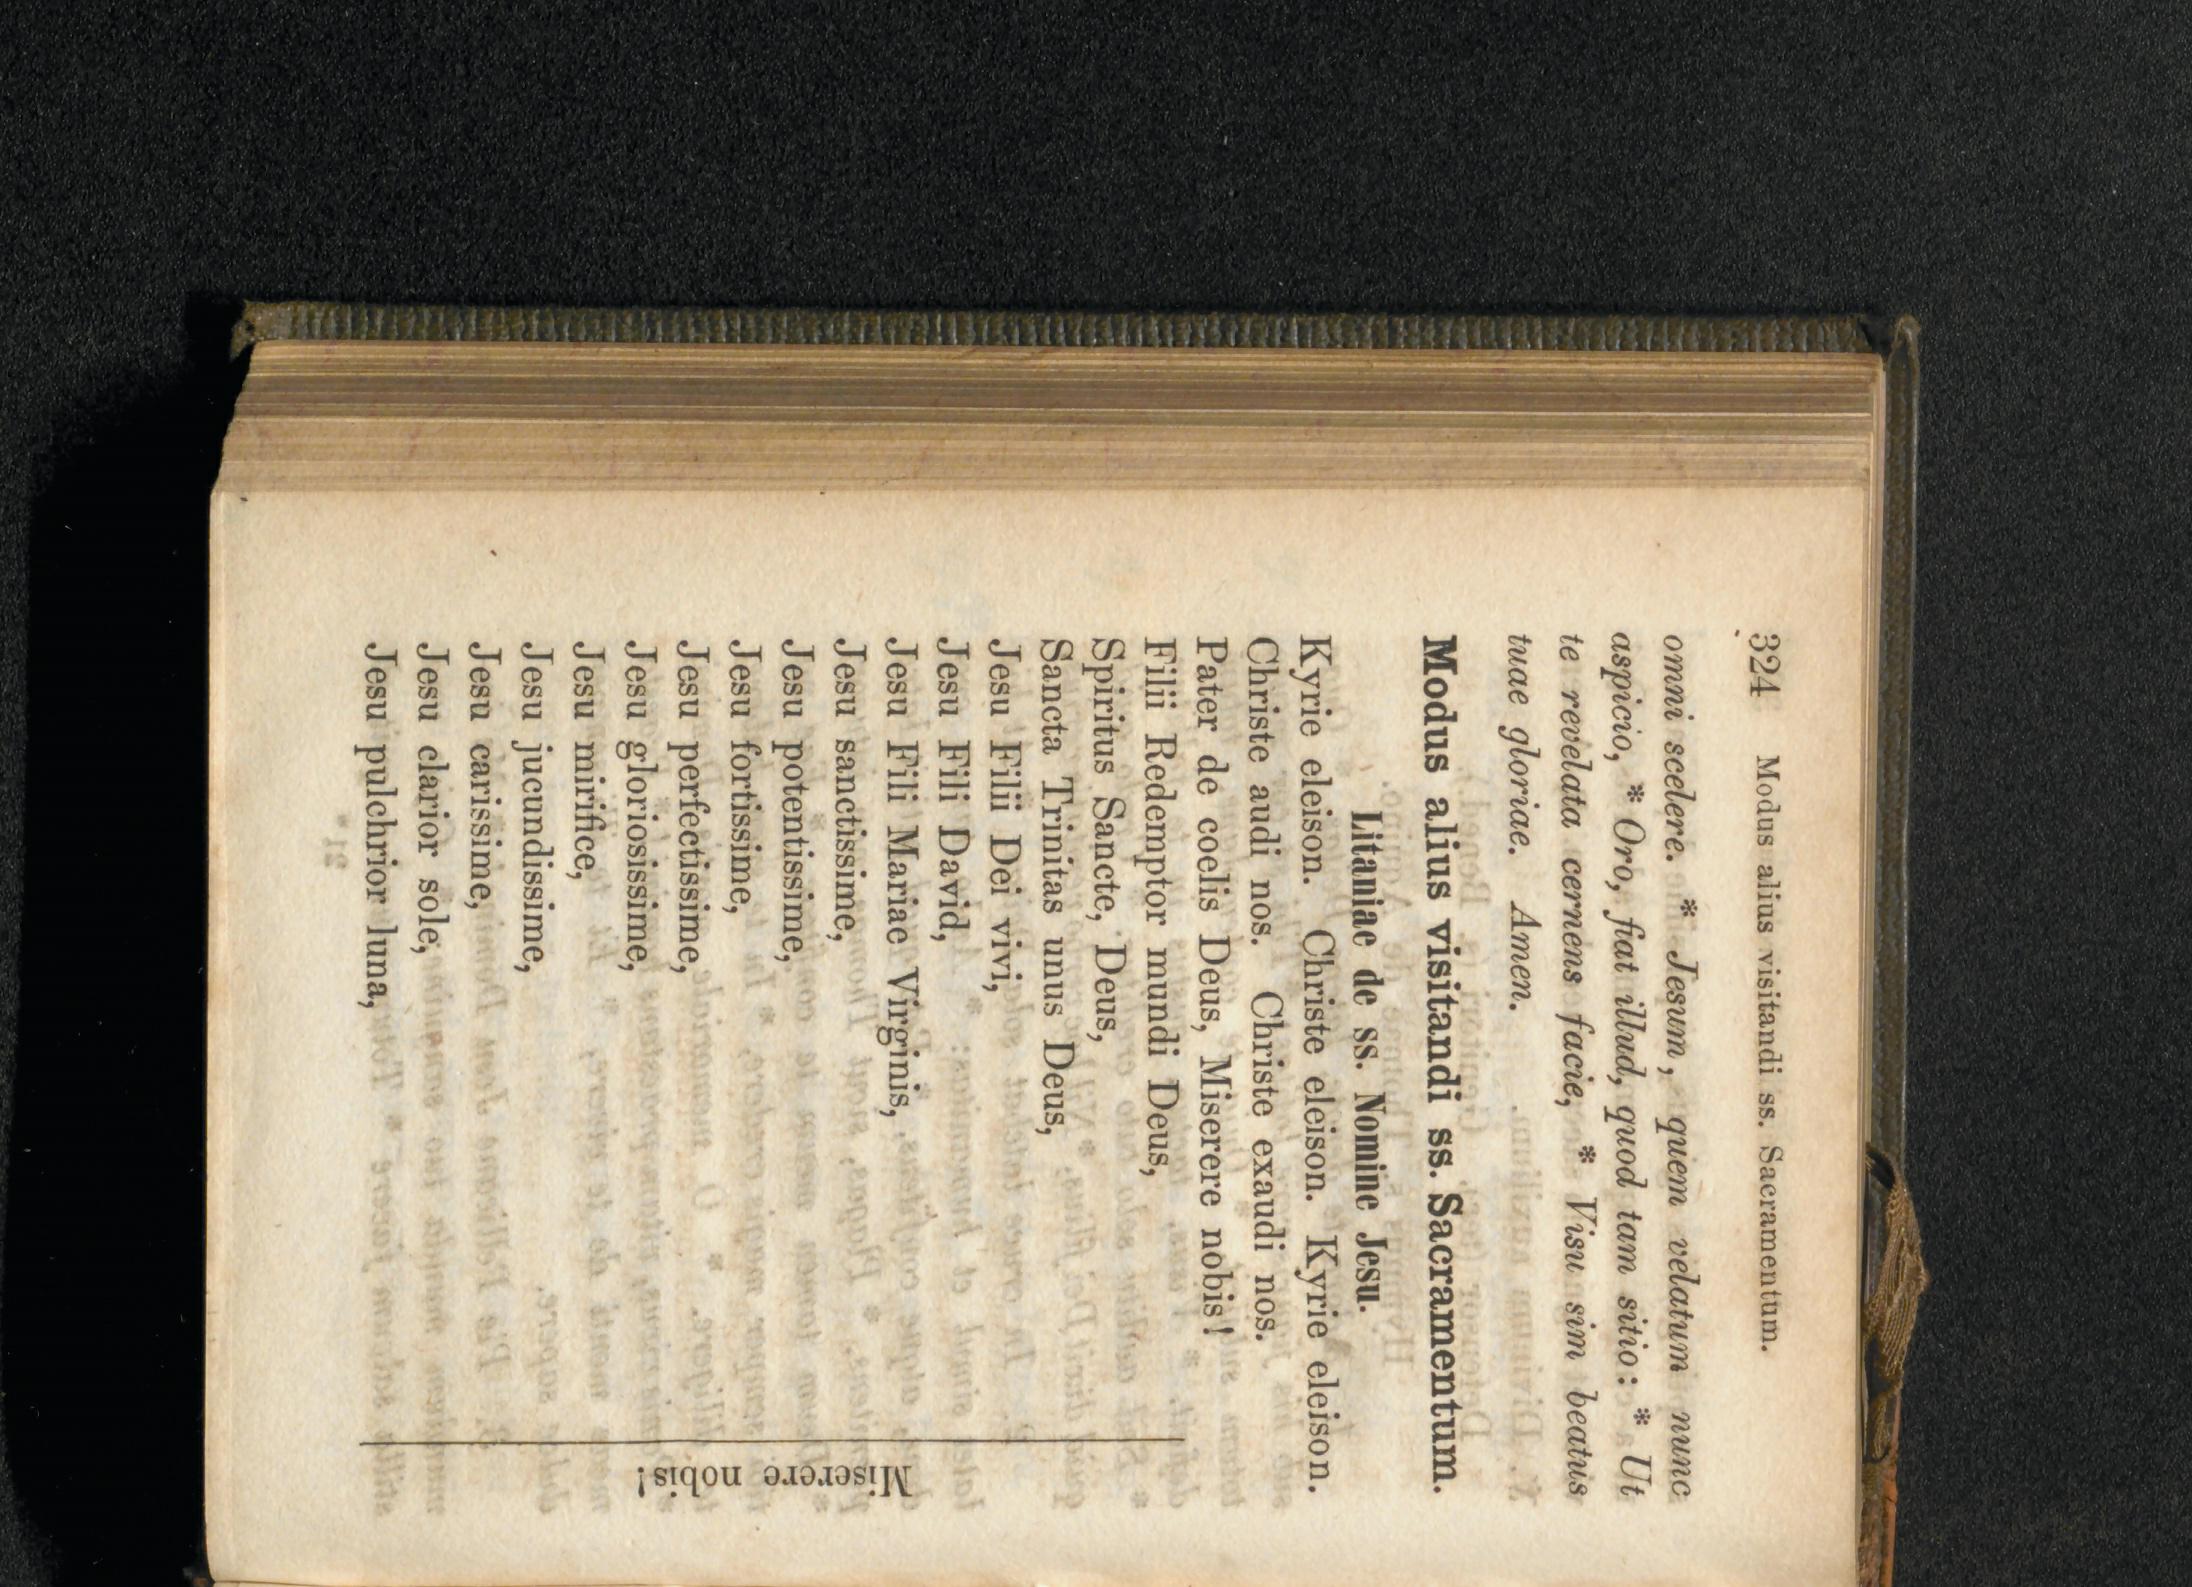 324 Modus alius visitandi ss. Sacramentum.
omni scelere. * Jesum, quem velatum nunc
aspicio, * Oro, fiat illud, quod tam sitio: * Ut
te revelata cernens facie, * Visu sim beatus
tuae gloriae. Amen.
Modus alius visitandi ss. Sacramentum.
Litaniae de ss. Nomine Jesu.
Kyrie eleison. Christe eleison. Kyrie eleison.
Christe audi nos. Christe exaudi nos.
Pater de coelis Deus, Miserere nobis!
Filii Redemptor mundi Deus,
Spiritus Sancte, Deus,
Sancta Trinitas unus Deus,
Jesu Filii Dei vivi,
Jesu Fili David,
Jesu Fili Mariae Virginis,
Jesu sanctissime,
Jesu potentissime,
Jesu fortissime,
Jesu perfectissime,
Jesu gloriosissime,
Jesu mirifice,
Jesu jucundissime,
Jesu carissime,
Jesu clarior sole,
Jesu pulchrior luna,
Miserere nobis!